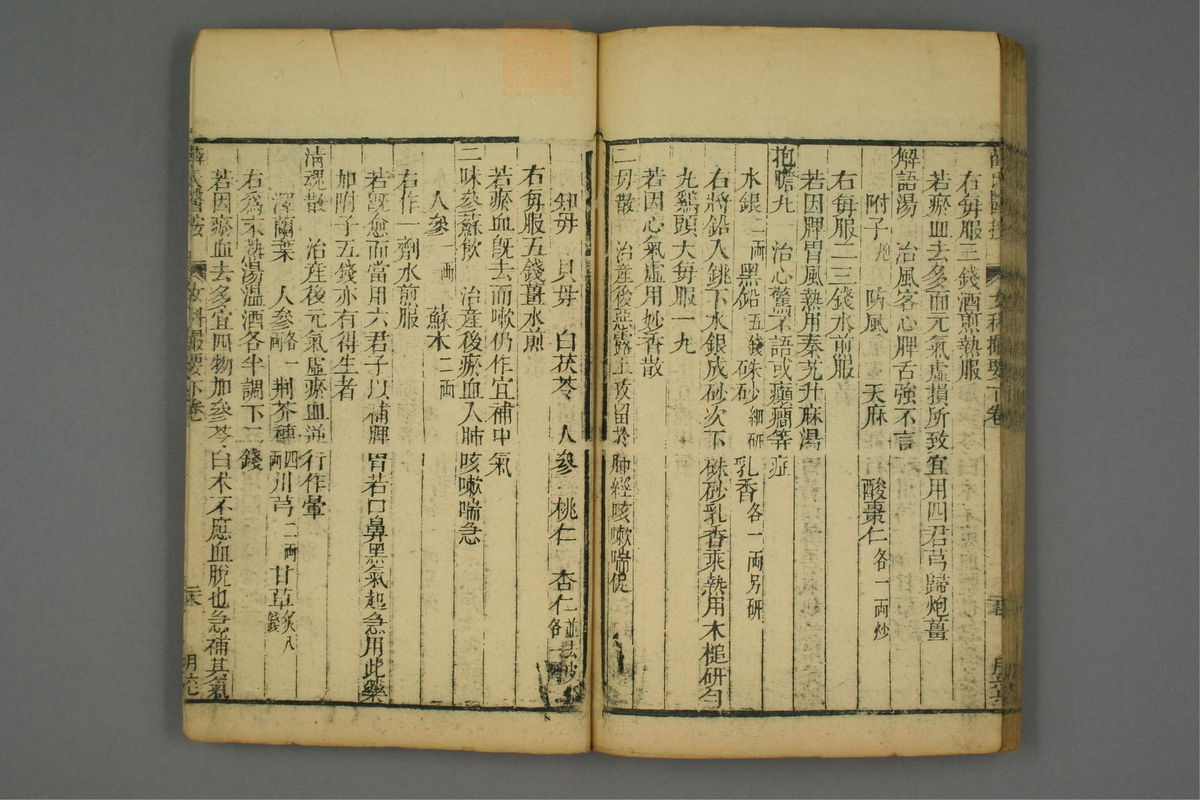 右每服三錢酒煎熱服
若瘀血去多而元氣虛損所致宜用四君芎歸炮薑
解語湯　治風客心脾舌強不言
附子炮　防風　天麻　酸棗仁各一兩炒
右每服二三錢水煎服
若因脾胃風熱用秦艽升麻湯
抱膽丸　治心驚不語或癲癇等症
水銀二兩　黑鉛五錢　硃砂細研　乳香各一兩另研
右將鉛入銚下水銀成砂次下硃砂乳香乘熱用木槌研勻
丸鷄頭大每服一丸
若因心氣虛用妙香散
二母散　治產後惡露上攻留於肺經咳嗽喘促
知母　貝母　白茯苓　人參　桃仁　杏仁並去
右每服五錢薑水煎
若瘀血既去而嗽仍作宜補中氣
二味參蘇飲　治產後瘀血入肺咳嗽喘急
人參一兩　蘇木二兩
右作一劑水煎服
若既愈而當用六君子以補脾胃若口鼻黑氣起急用此藥
加附子五錢亦有得生者
清魂散　治產後元氣虛瘀血逆行作暈
澤蘭葉　人參各一兩　荆芥穗四兩　川芎二兩　甘草炙八錢
右為末熱湯溫酒各半調下二錢
若因瘀血去多宜四物加參苓白朮不應血脫也急補其氣
薛氏醫按　女科撮要下卷